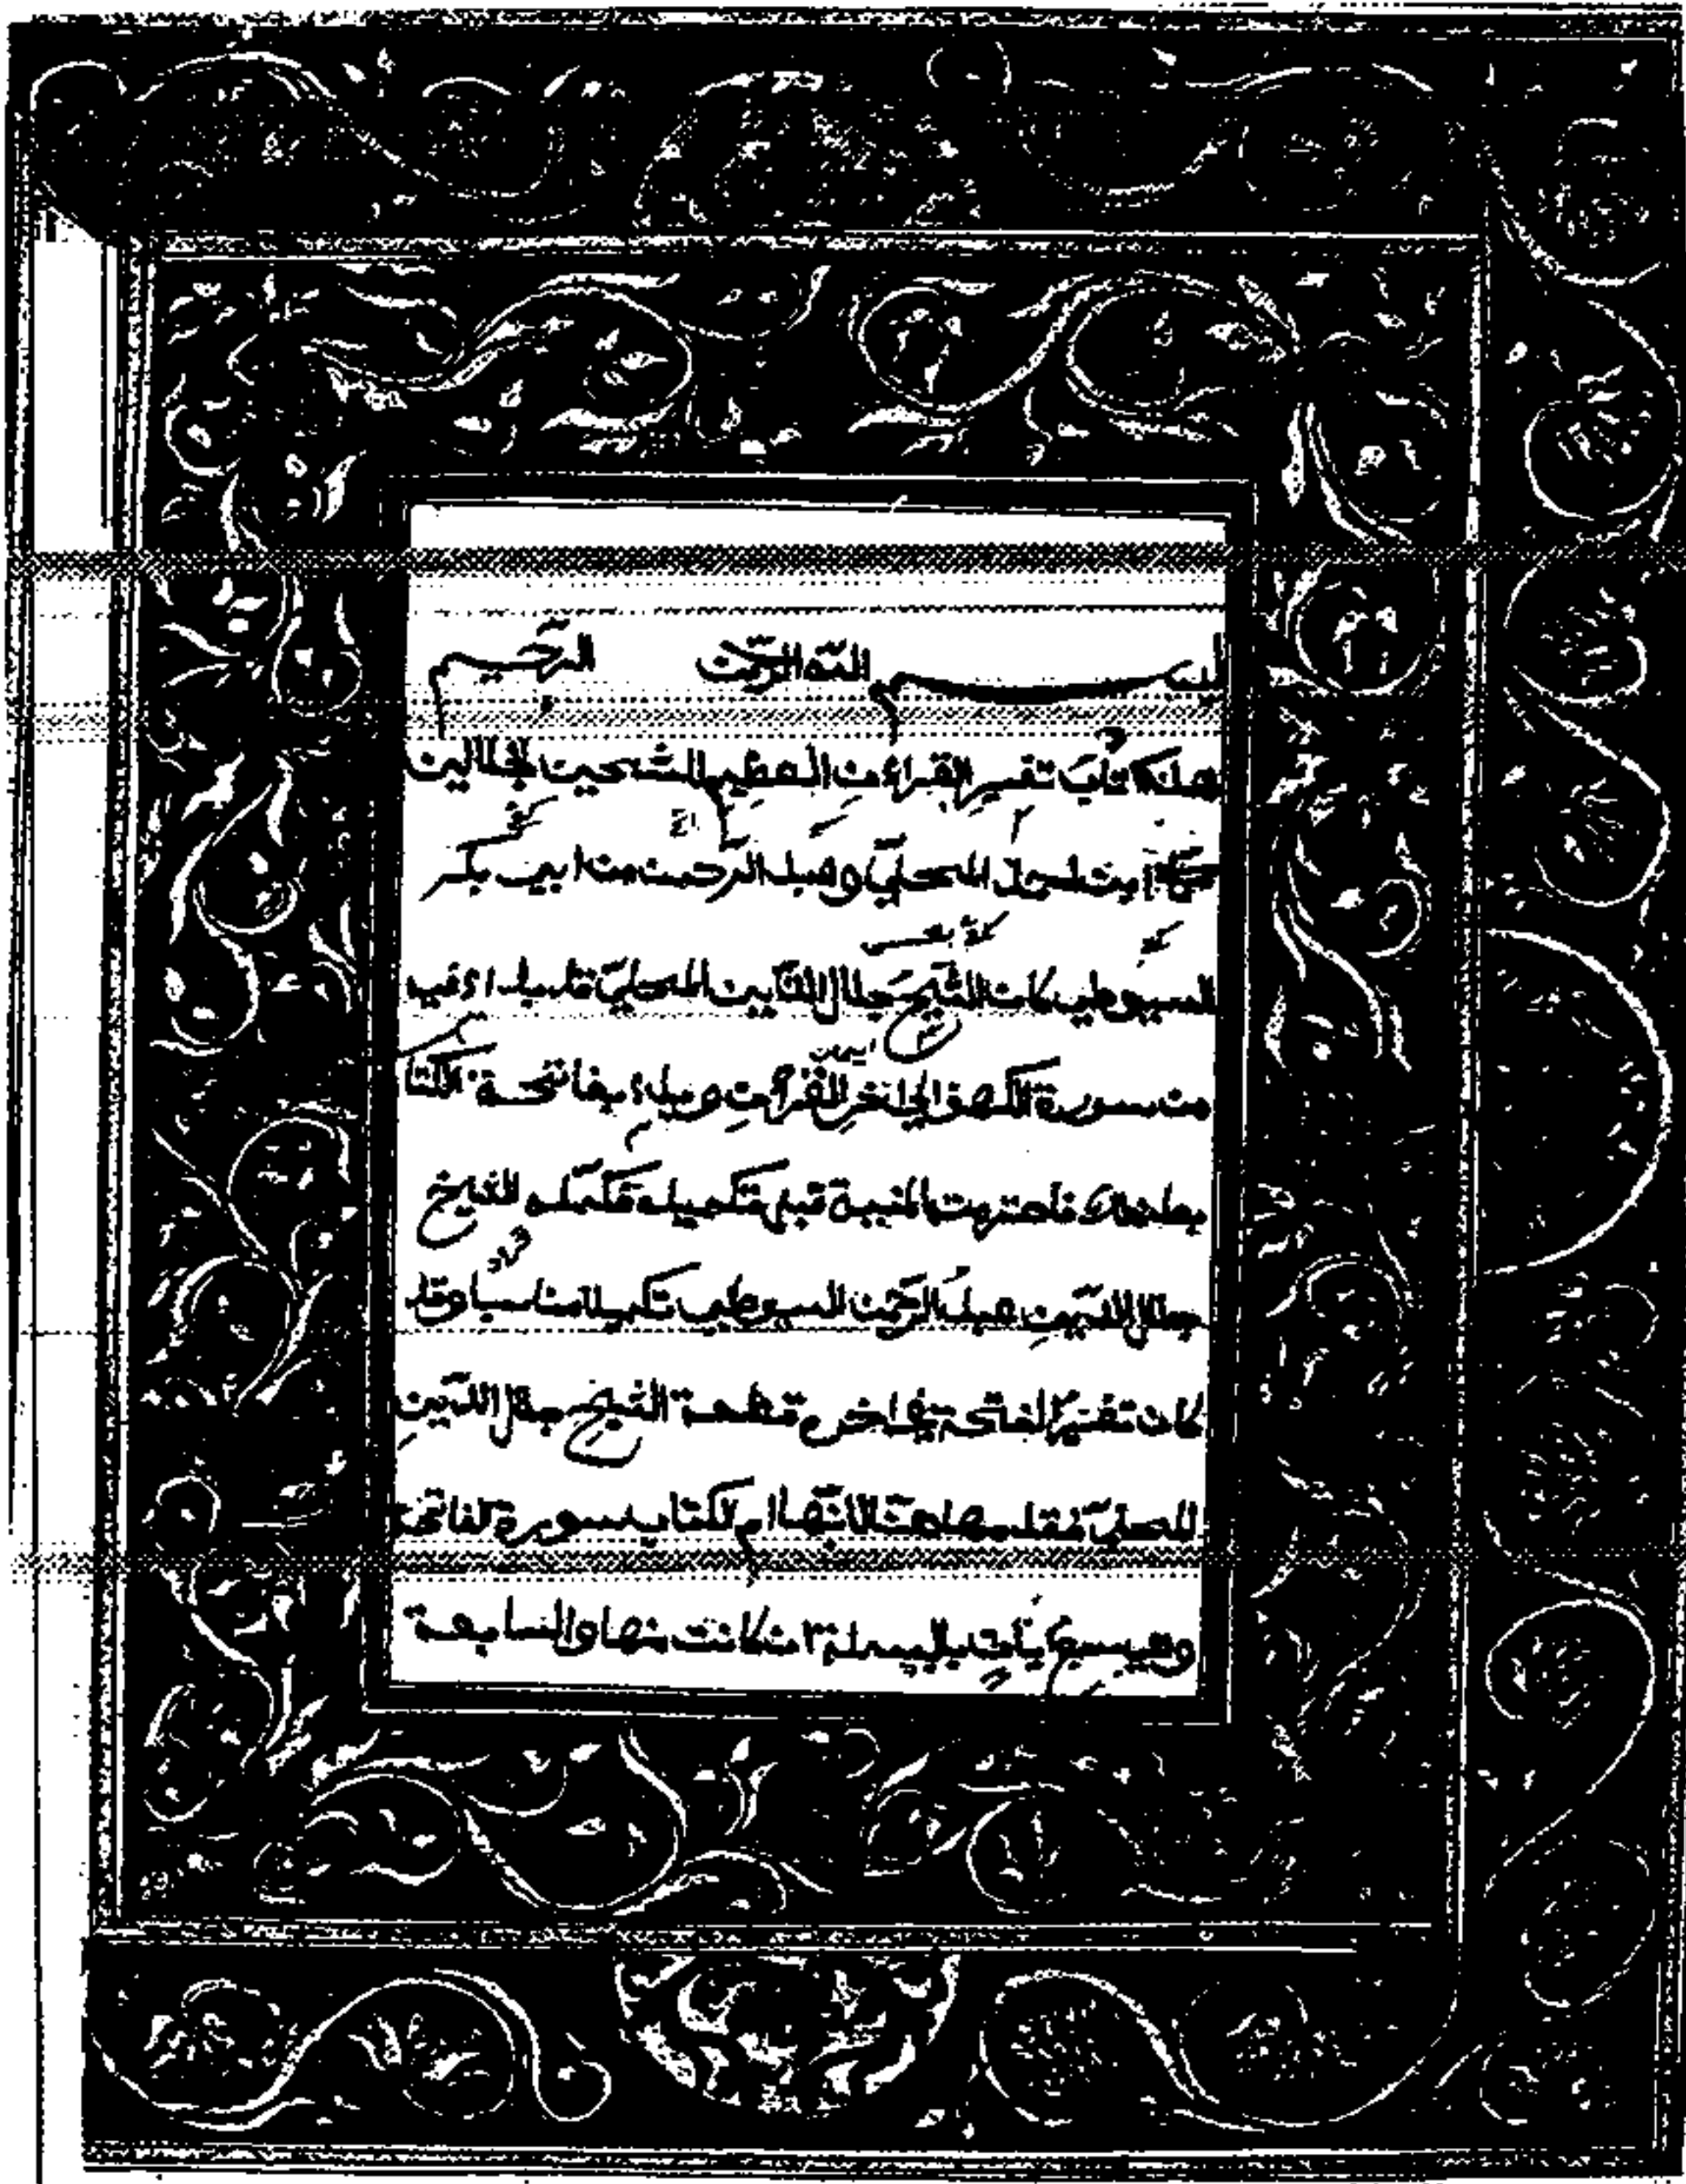 بسم الله الرحمن الرحيم
هذا كتاب تفسير القراءن العظيم للشيخين الجلالين
محمد ابن احمد المحلي وعبد الرحمن بن ابي بكر
السيوطي كان الشيخ جلال الدين المحلي
من سورة الكهف الي اخر القراءن وبداء بفاتحة الكتا
بعد ذلك فاخترمت المنية قبل تكميله فكمله الشيخ
جلال الدين عبد الرحمن السيوطي تكميلا مناسبا وقد
كان تفسير الفتحة في اخر قطعة الشيخ جلال الدين
المحلي فقدمها لانها ام الكتاب سورة الفاتحة
وهي سبع ءايات بالبسملة ان كانت منها والسابعة